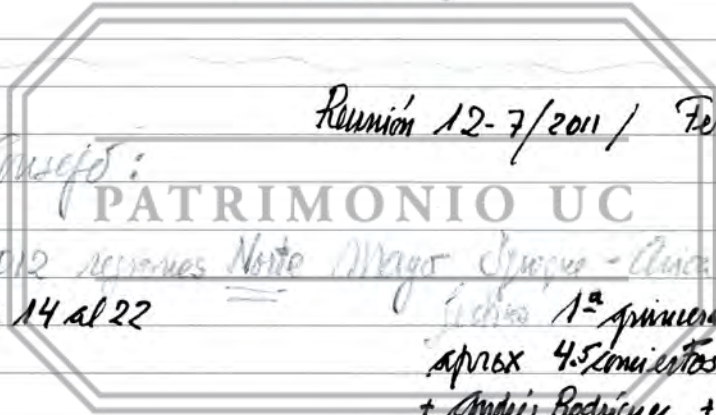 Reunión 12-7/2011 / Fe
Consejo:
PATRIMONIO UC
2012 regiones Norte Mayo Iquique - Arica
14 al 22 1ª quincena
aprox 4.5 conciertos
+ Andrés Rodríguez +